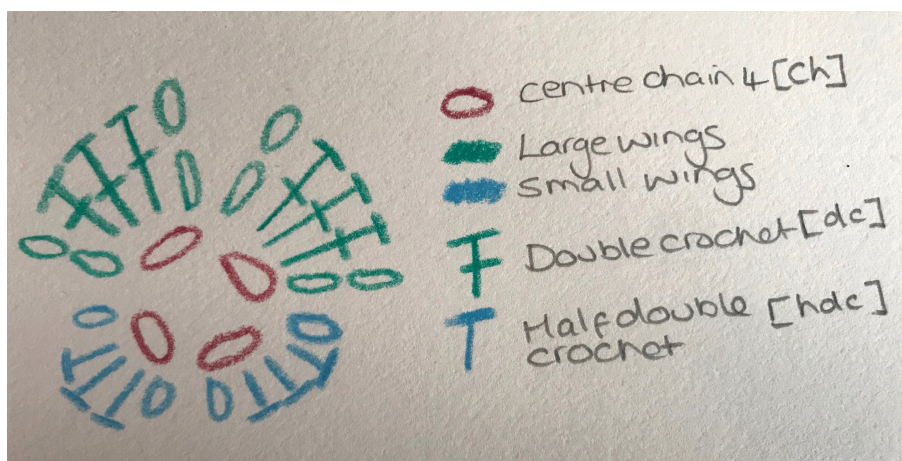 centre chain 4 [ch]
Large wings
small wings
Double crochet [dc]
Half double [hdc]
crochet